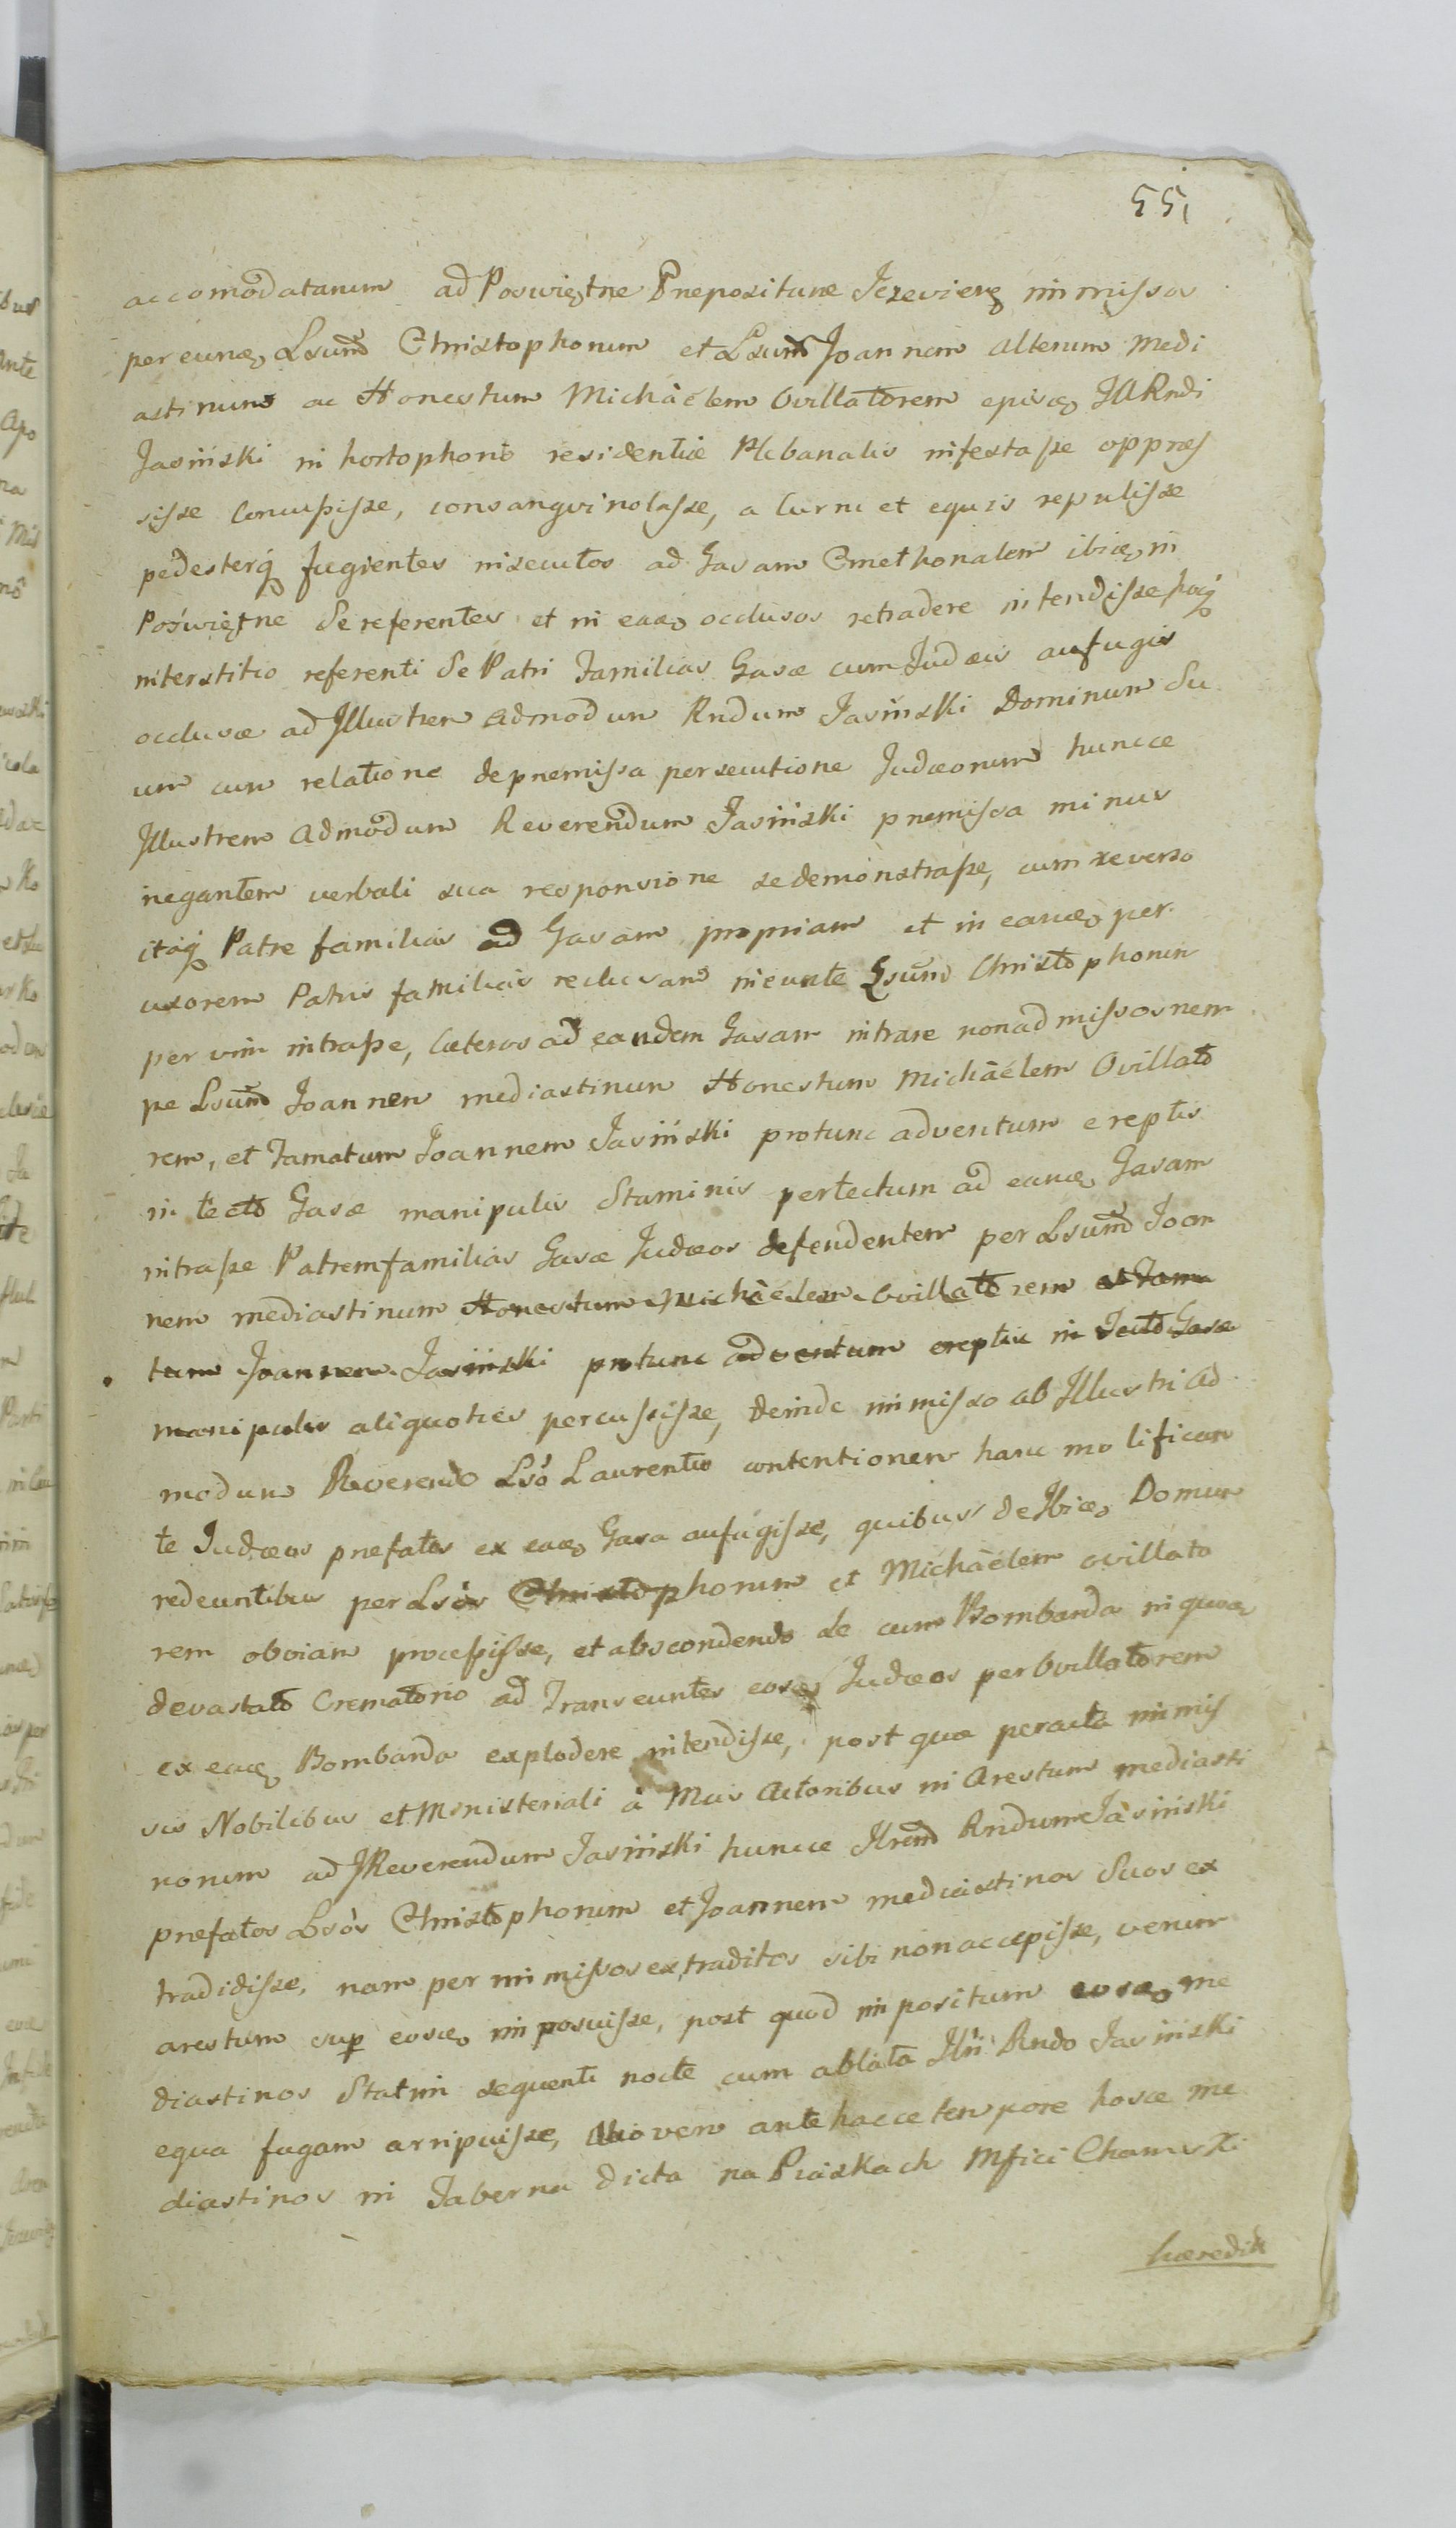 55
accomodatarum ad Poswiętne Prepositurae Jezeviens immissos
per eunce Lsum Christophorum et Lsum Joannem alterum Medi
astinum ac Honestum Michaelem Ovillatorem episce JARndi
Jasiński in hortophoro residentiae Plebanalis infestasse oppres
sisse concussisse, consangvinolasse, a curru et equis repulisse
pedesterq fugientes insecutos ad Gasam Cmethonalem ibice in
Poświętne se referentes et in eace occlusos retradere intendisse hocq
interstitio referenti se Patri Familias Gasae cum Judaeis aufugis
occlusae ad Illustrem admodum Rndum Jasiński Dominum Su
um cum relatione de premissa persecutione Judaeorum huncce
Illustrem Admodum Reverendum Jasiński premissa minus
negantem verbali sua responsione se demonstrasse, cum reverso
itaq Patre familias ad Gasam propriam et in eance per
uxorem Patris familias reclusam ineunte Lsum Christophorum
per vim intrasse, caeteros ad eandem Gasam intrare non admissos nem
pe Lsum Joannem mediastinum Honestum Michaelem Ovillato
rem, et Famatum Joannem Jasiński protunc adventum ereptis
in tecto Gasae manipulis Straminis per tectum ad eance Gasam
intrasse Patremfamilias Gasae Judaeos defendentem per Lsum Joan
nem mediastinum Honestum Michaelem Ovillatorem et Fama
tum Joannem Jasiński protunc adventum ereptis in Tecto Gasae
manipulis aliquoties percussisse, deinde immisso ab Illustri ad
modum Reverendo Lso Laurentio contentionem hanc molifican
te Judaeos prefatos ex eace Gasa aufugisse, quibus de Ibice Domum
redeuntibus per Lsos Christophorum et Michaelem ovillato
rem obviam processisse, et abscondendo se cum Bombarda in quoce
devastato Crematorio ad Transeuntes eosce Judaeos per Ovillatorem
ex eace Bombarda explodere intendisse, post quae peracta immis
sis Nobilibus et Ministeriali à Mcis Actoribus in Arestum mediasti
norum ad JReverendum Jasiński huncce Ilrem Rndum Jasiński
prefatos Lsos Christophorum et Joannem mediastinos Suos ex
tradidisse, nam per immissos extraditos sibi non accepisse, verum
arestum sup eosce imposuisse, post quod impositum eosce me
diastinos Statim sequenti nocte cum ablata Ilri Rndo Jasiński
equa fugam arripuisse, Quo vero ante hacce tempore hosce me
diastinos in Taberna dicta na Piaskach Mfici Chamski
haeredit